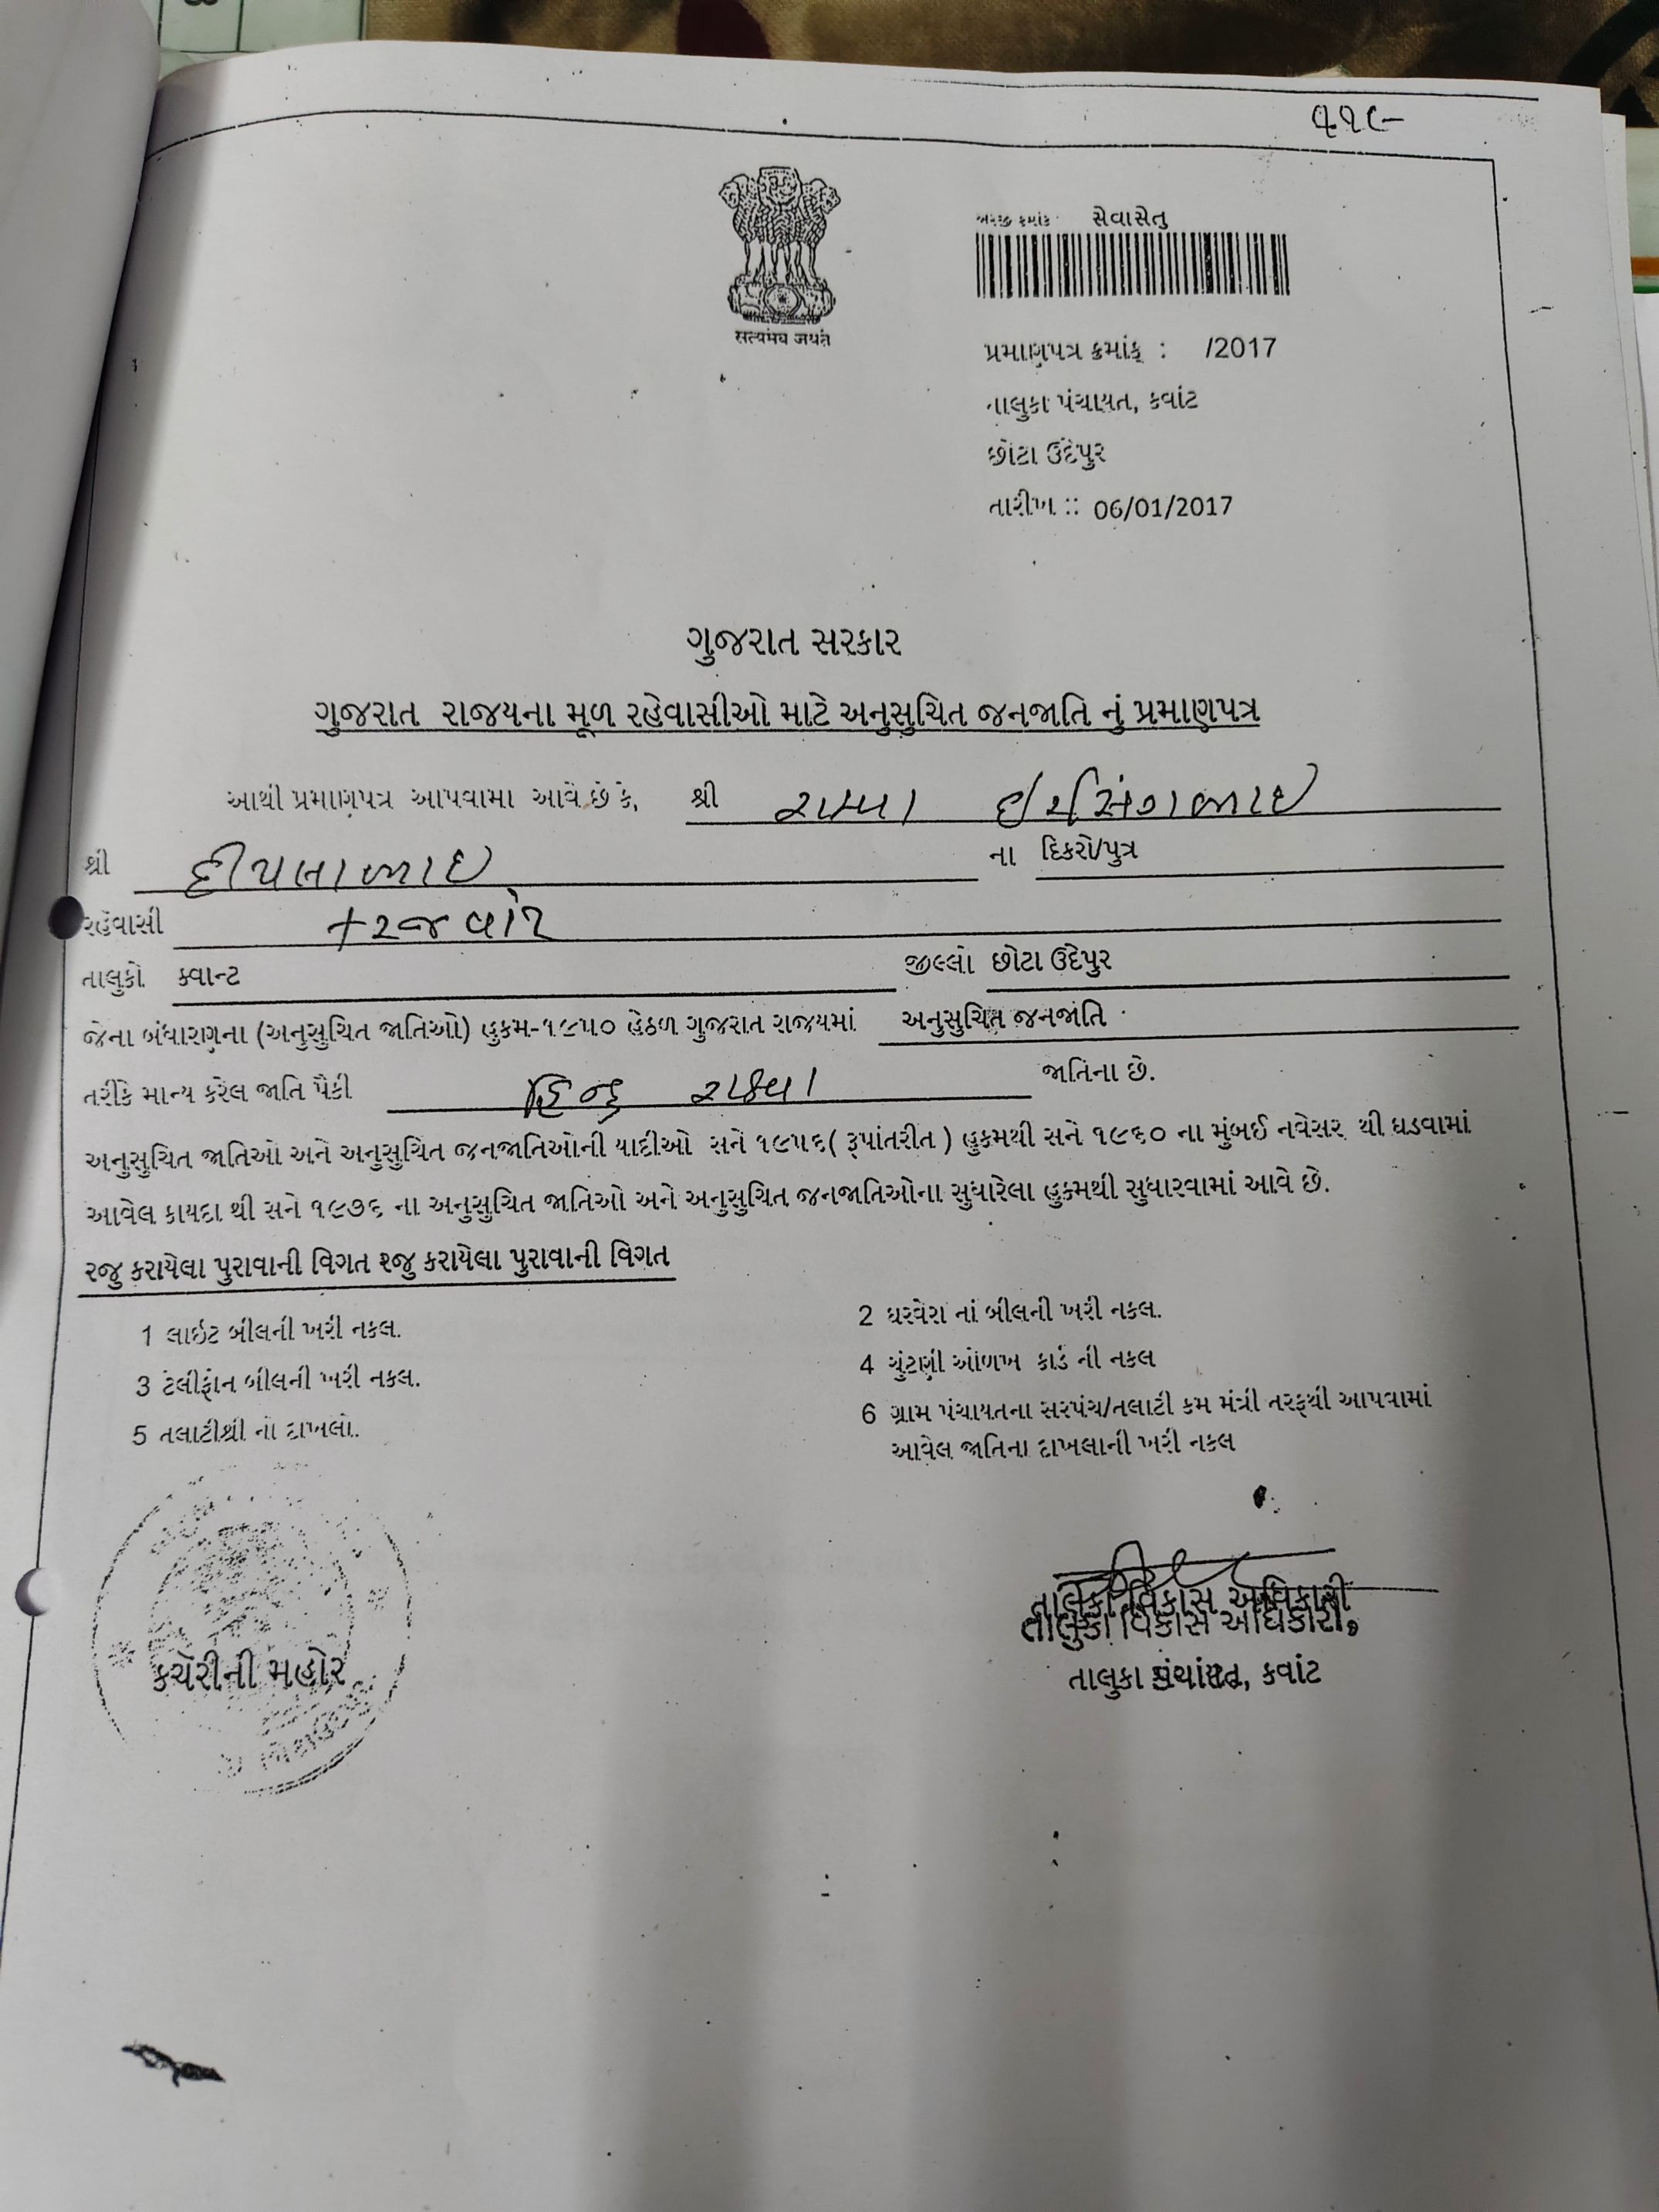 સત્યમેવ જયતે
અરજી ક્રમાંક સેવાસેતુ
પ્રમાણપત્ર ક્રમાંક : /2017
તાલુકા પંચાયત, કવાંટ
છોટા ઉદેપુર
તારીખ :: 06/01/2017
ગુજરાત સરકાર
ગુજરાત રાજયના મૂળ રહેવાસીઓ માટે અનુસુચિત જનજાતિ નું પ્રમાણપત્ર
આથી પ્રમાણપત્ર આપવામા આવે છે કે, શ્રી
શ્રી ના દિકરો/પુત્ર
રહેવાસી
તાલુકો ક્વાન્ટ જીલ્લો છોટા ઉદેપુર
જેના બંધારાણના (અનુસુચિત જાતિઓ) હુકમ-૧૯૫૦ હેઠળ ગુજરાત રાજયમાં અનુસુચિત જનજાતિ
તરીકે માન્ય કરેલ જાતિ પૈકી હિન્દુ રાઠવા જાતિના છે.
અનુસુચિત જાતિઓ અને અનુસુચિત જનજાતિઓની યાદીઓ સને ૧૯૫૬( રૂપાંતરીત ) હુકમથી સને ૧૯૬૦ ના મુંબઈ નવેસર થી ઘડવામાં
આવેલ કાયદા થી સને ૧૯૭૬ ના અનુસુચિત જાતિઓ અને અનુસુચિત જનજાતિઓના સુધારેલા હુકમથી સુધારવામાં આવે છે.
રજુ કરાયેલા પુરાવાની વિગત રજુ કરાયેલા પુરાવાની વિગત
1 લાઇટ બીલની ખરી નકલ.
2 ઘરવેરા નાં બીલની ખરી નકલ.
3 ટેલીફોન બીલની ખરી નકલ.
4 ચુંટણી ઓળખ કાર્ડ ની નકલ
5 તલાટીશ્રી નો દાખલો.
6 ગ્રામ પંચાયતના સરપંચ/તલાટી કમ મંત્રી તરફથી આપવામાં
આવેલ જાતિના દાખલાની ખરી નકલ
તાલુકા વિકાસ અધિકારી
તાલુકા વિકાસ અધિકારી,
કચેરીની મહોર
તાલુકા પંચાયત, કવાંટ